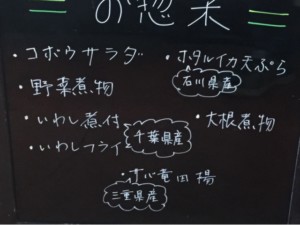 お惣菜
・コボウサラダ
・野菜煮物
・いわし煮付
・いわしフライ
千葉県産
・ホタルイカ天ぷら
石川県産
・大根煮物
竜田揚
三重県産